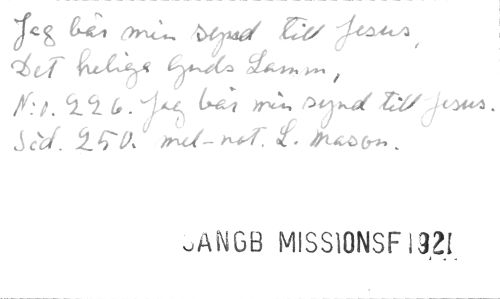 Jag bär min synd till Jesus,
Det heliga Guds Lamm,
N:o. 226. Jag bär min synd till Jesus.
Sid. 250. mel-not. L. Mason.
SANGB MISSIONSF 1921